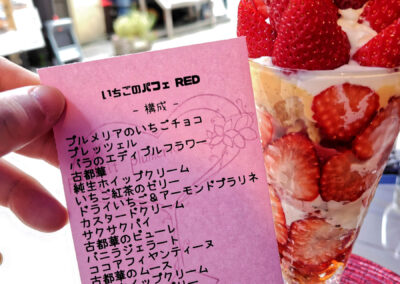 いちごのパフェ RED
- 構成 -
プルメリアのいちごチョコ
プレッツェル
バラのエディブルフラワー
古都華
純生ホイップクリーム
いちご紅茶のゼリー
ドライいちご&アーモンドプラリネ
カスタードクリーム
サクサクパイ
古都華のピューレ
バニラジェラート
ココアフィヤンティーヌ
古都華のムース
ホイップクリーム